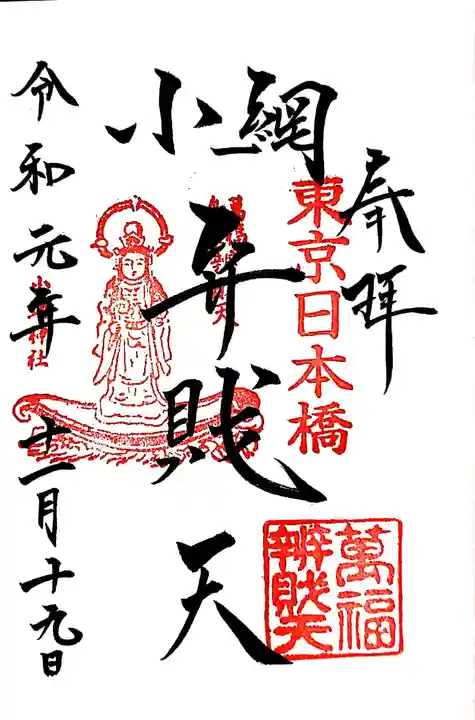 奉拝
東京日本橋
小網
弁財天
萬福
辨財天
小網神社
令和元年十一月十九日